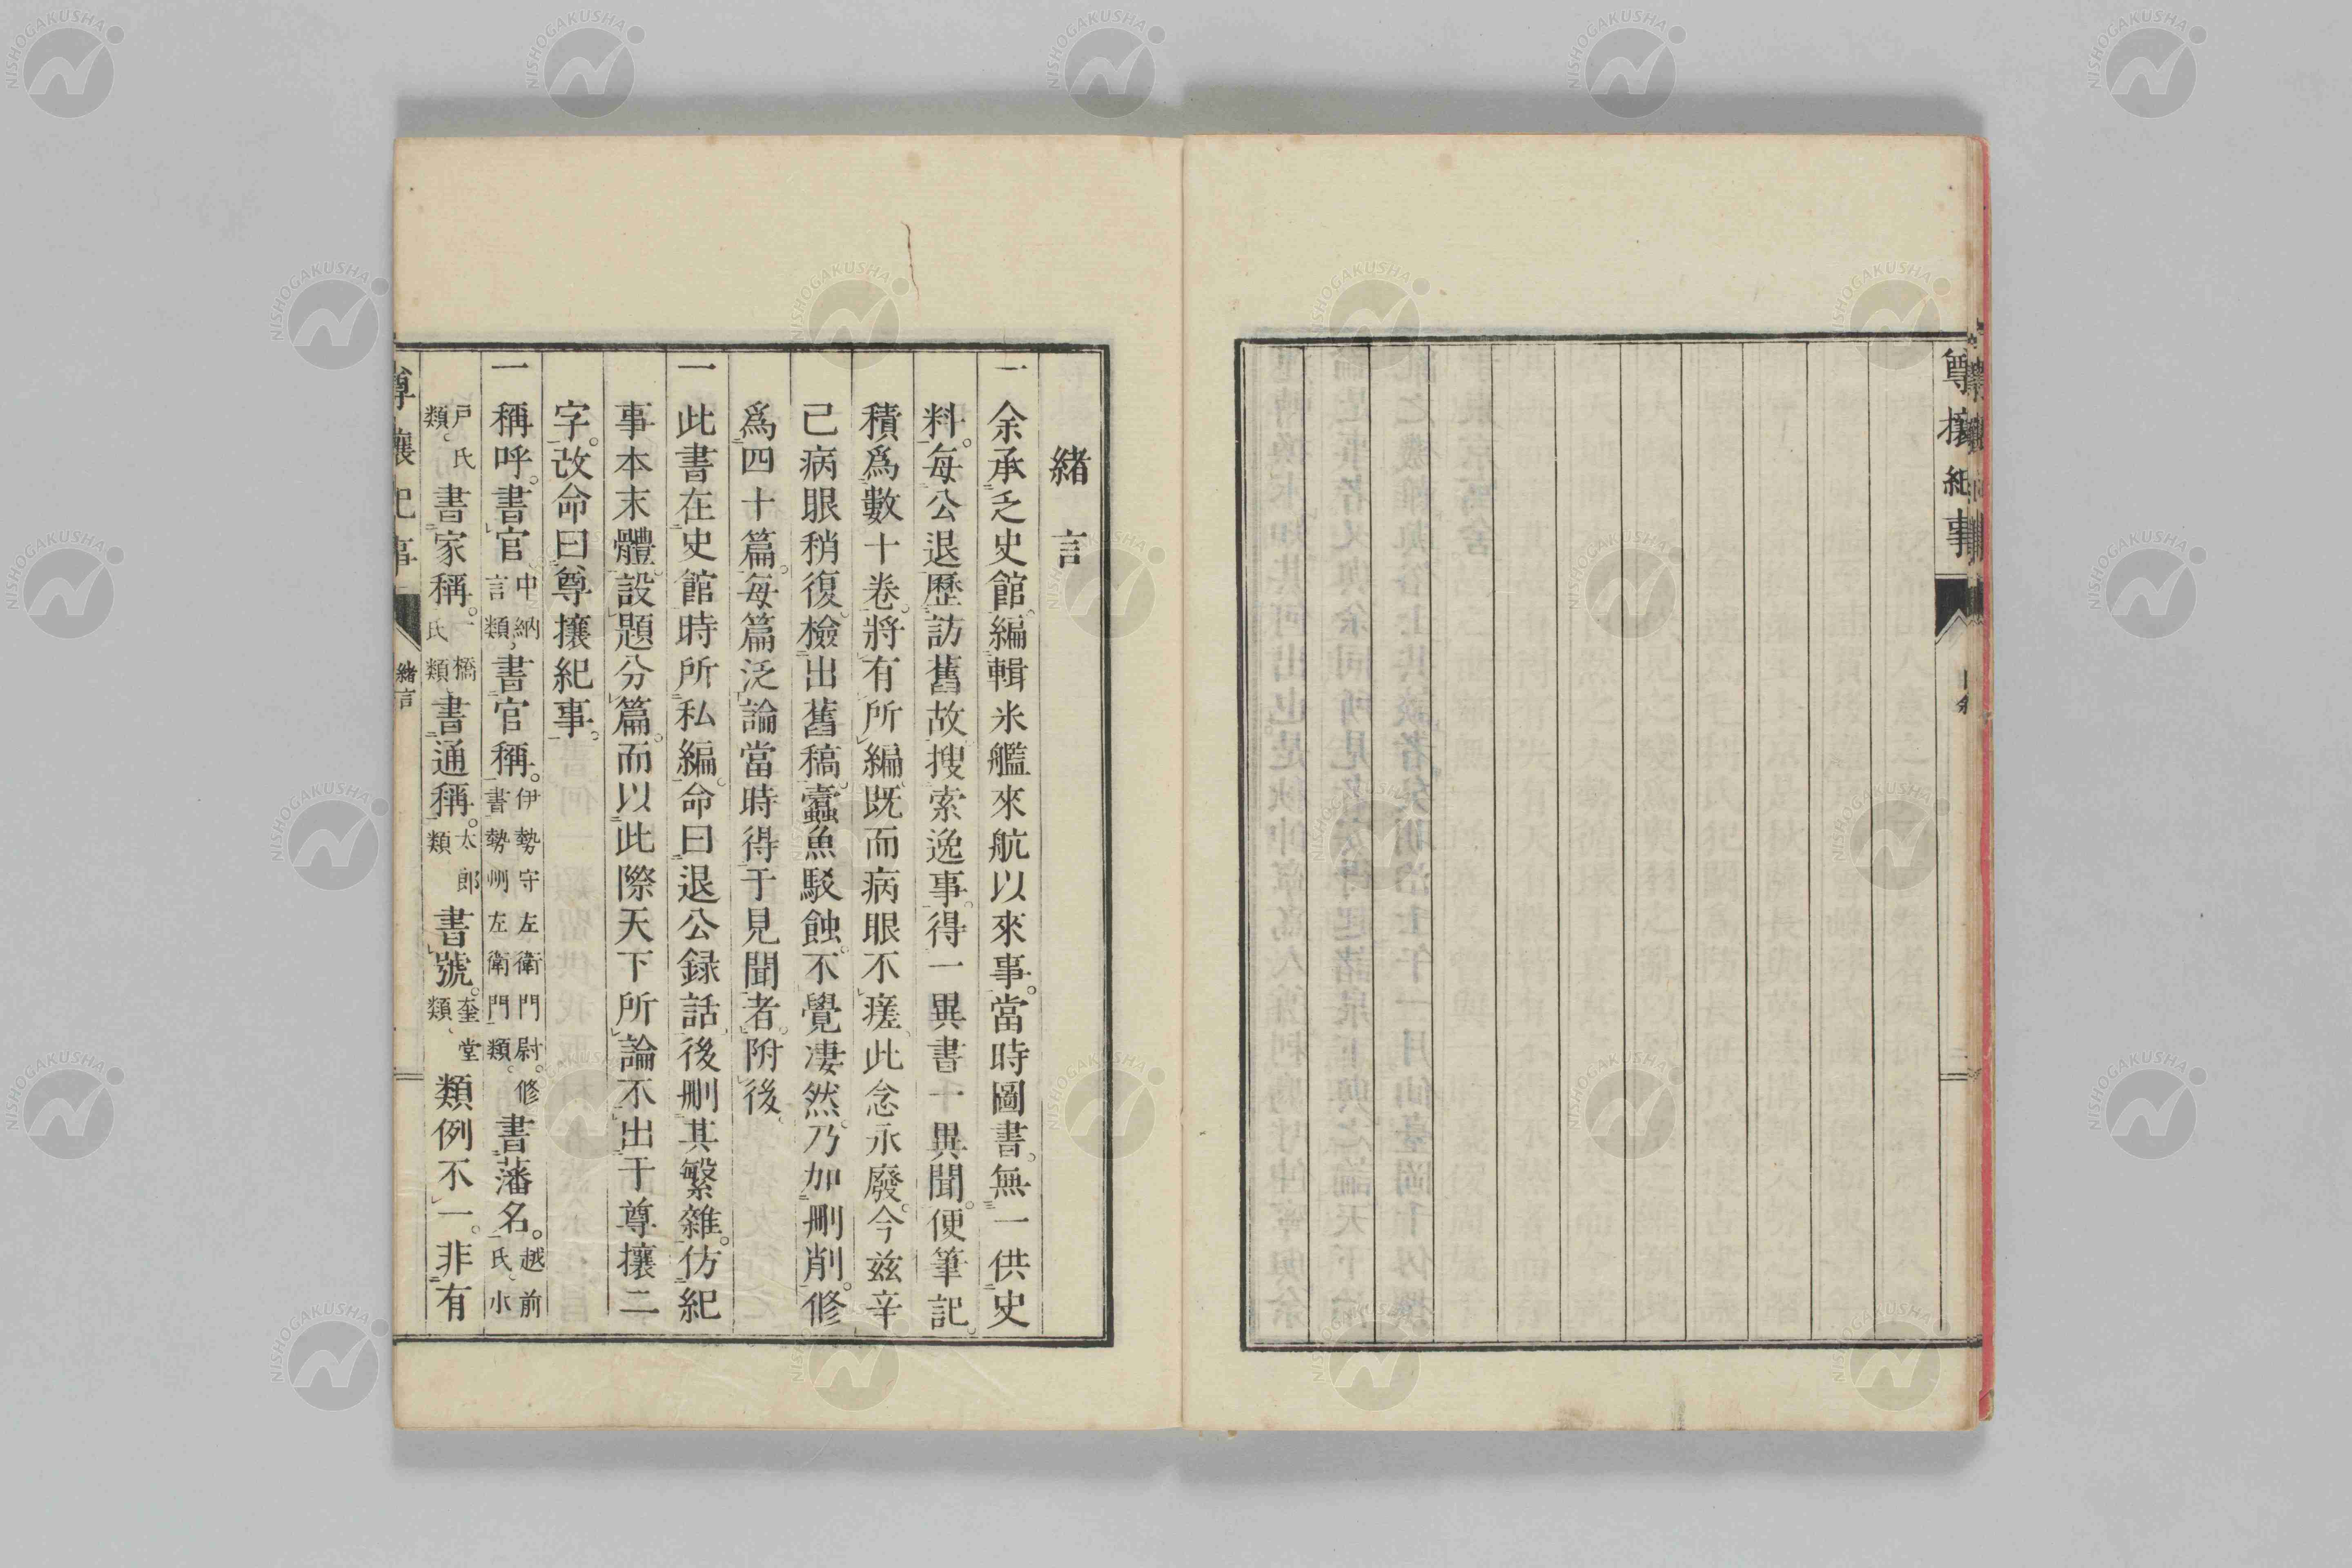 尊攘紀事
緒言
一余承乏史館。編輯米艦來航以來事。當時圖書。無一供史
料。每公退歷訪舊故搜索逸事。得一異書十異聞。便筆記
積爲數十卷。將有所編。既而病眼不瘥。此念永廢。今茲辛
己病眼稍復。檢出舊稿。蠹魚駁蝕。不覺凄然。乃加刪削。修
爲四十篇。每篇泛論當時得于見聞者。附後
一此書在史館時所私編。命曰退公録話。後刪其繁雜。仿紀
事本末體。設題分篇。而以此際天下所論不出于尊攘二
字。改命曰尊攘紀事。
一稱呼。書官中納言類、書官稱。伊勢守左衛門尉。修書勢州左衛門類。書藩名。越前氏、水
戸氏類。書家稱。一橋氏類書通稱。太郎類書號。奎堂類、類例不一。非有
尊攘紀事 緒言
NISHOGAKUSHA